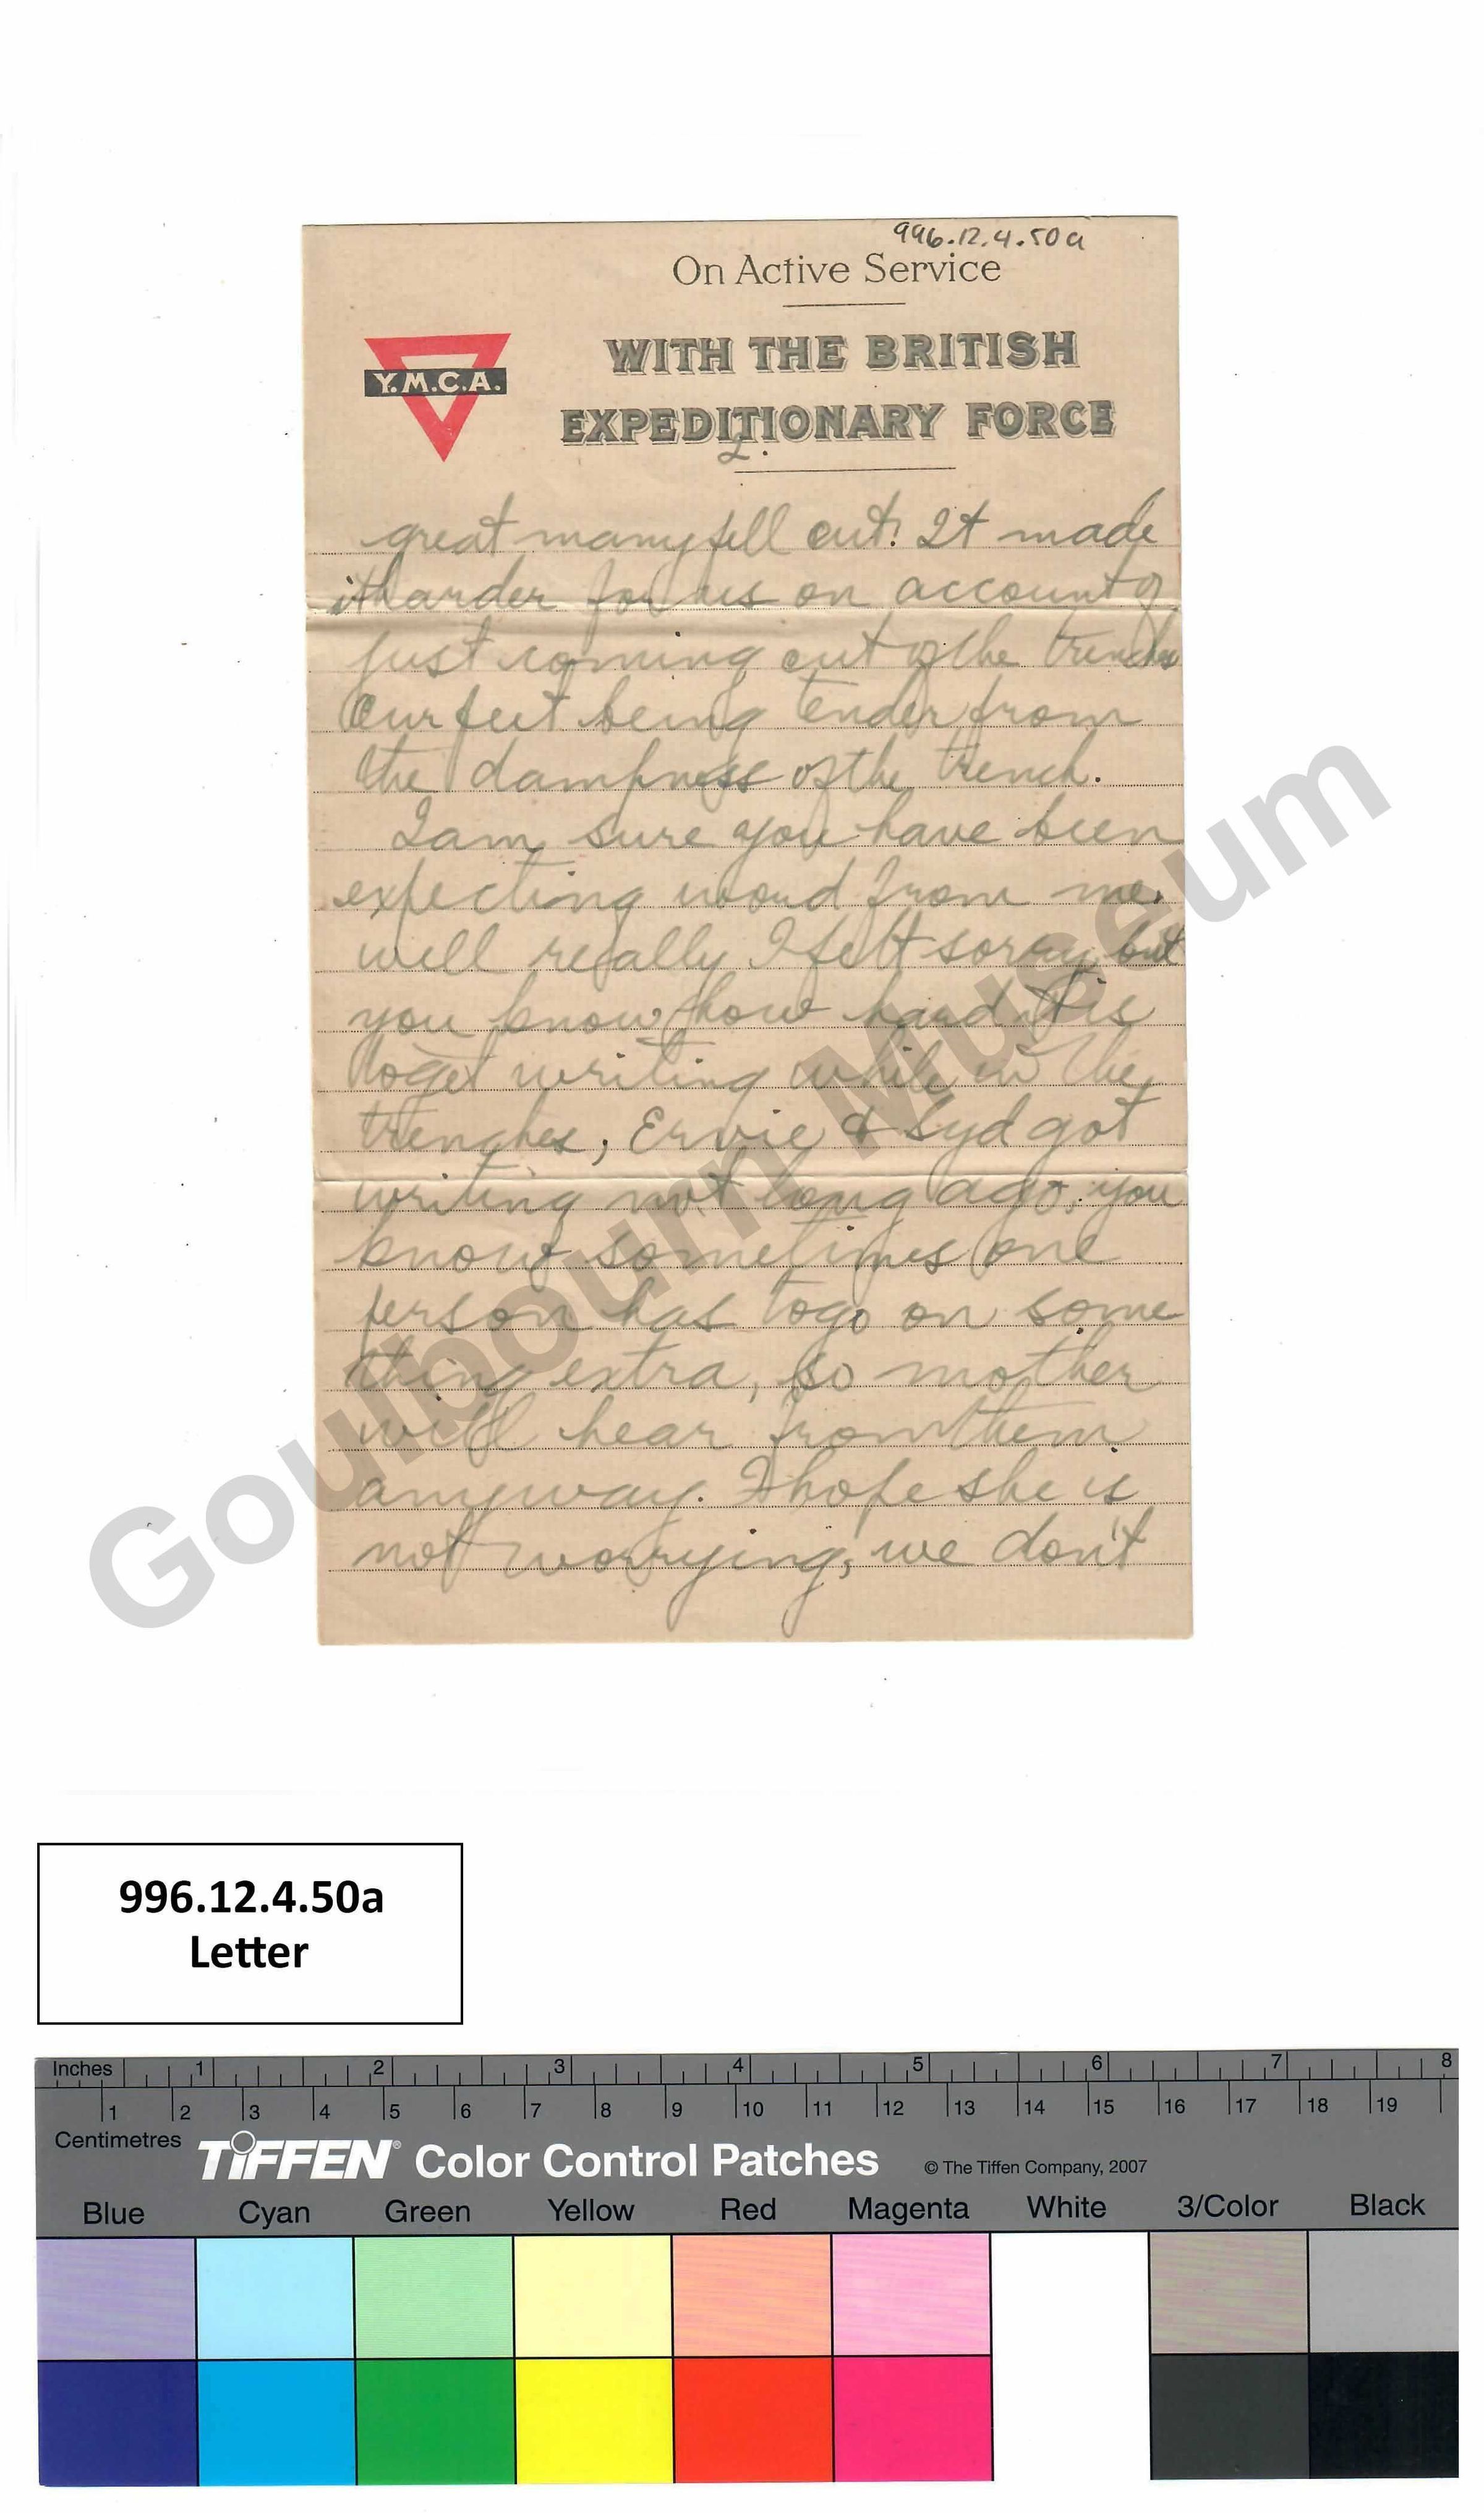 996.12.4.50a
On Active Service
Y.M.C.A.
WITH THE BRITISH
EXPEDITIONARY FORCE
2.
great many fell out. It made
it harder for us on account of
just coming out of the trenches
Our feet being tender from
the dampness of the trench.
I am sure you have been
expecting word from me.
well really I felt sorry but
you know how hard it is
to get writing while in the
trenches, Ervie & Syd got
writing not long ago. you
know sometimes one
person has to go on some
thing extra, so mother
will hear from them
anyway. I hope she is
not worrying, we don't
Goulbourn Museum
996.12.4.50a
Letter
Inches 1 2 3 4 5 6 7 8
1 2 3 4 5 6 7 8 9 10 11 12 13 14 15 16 17 18 19
Centimetres
TIFFEN® Color Control Patches © The Tiffen Company, 2007
Blue Cyan Green Yellow Red Magenta White 3/Color Black